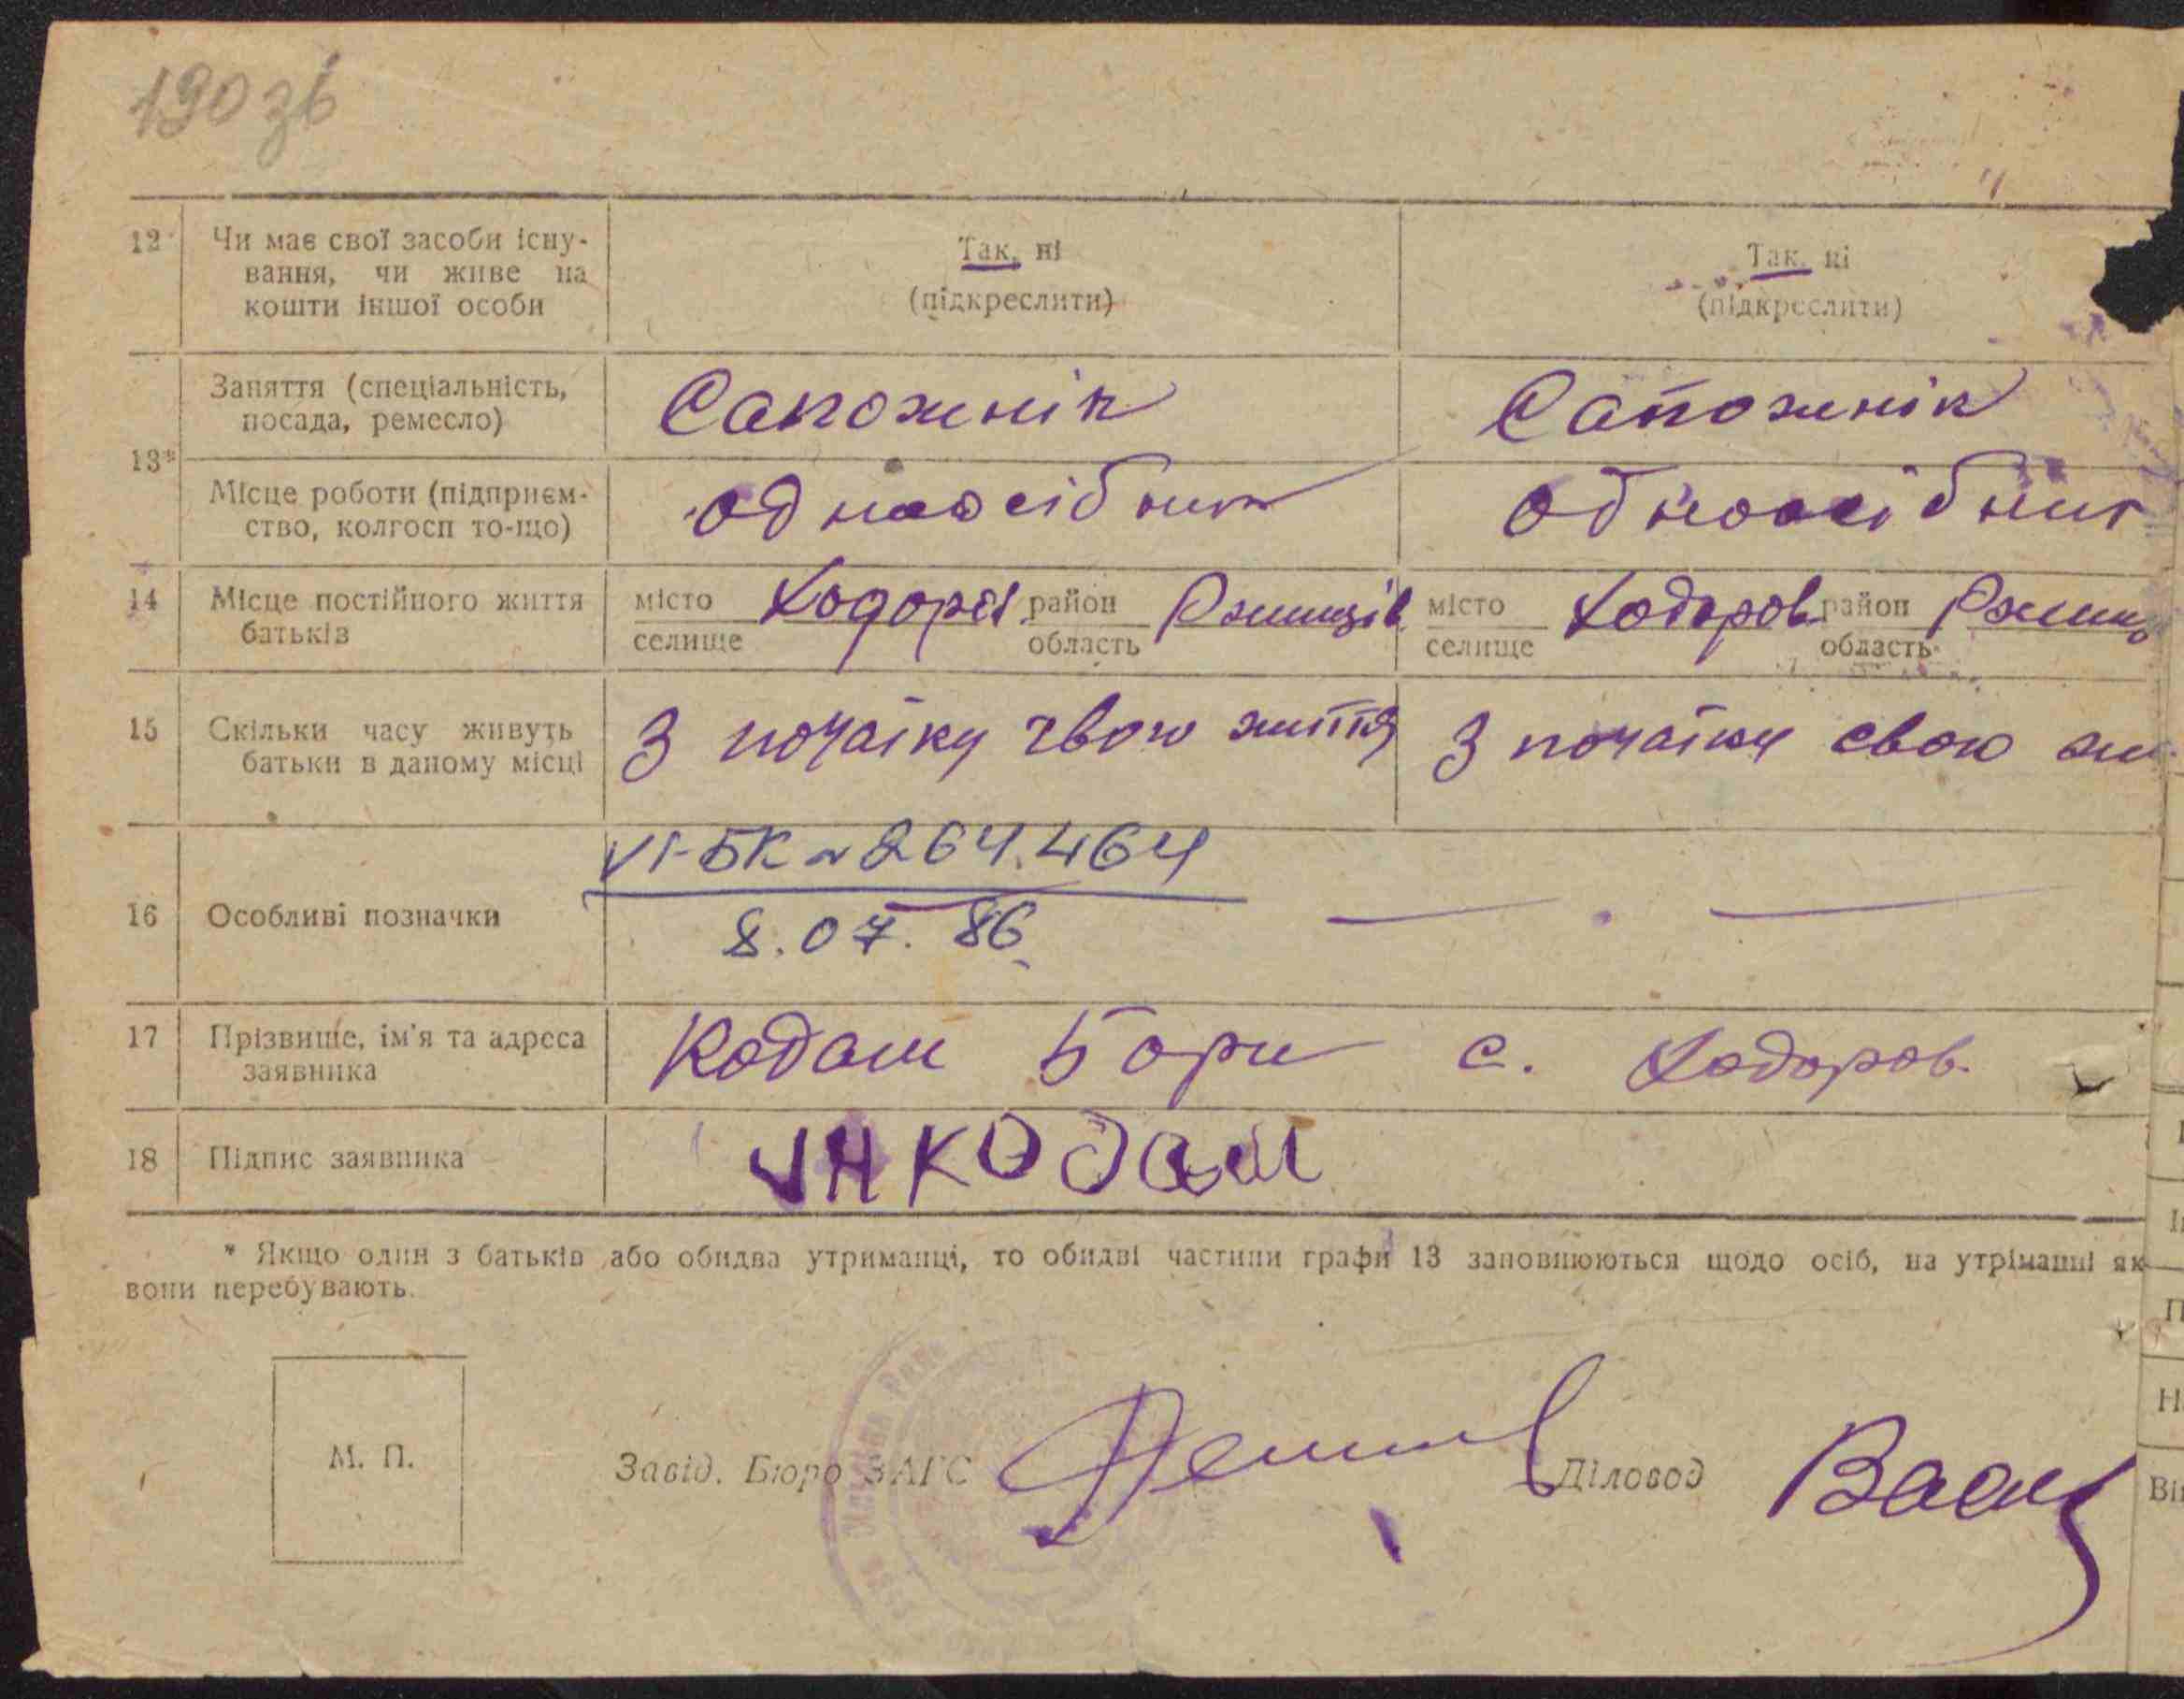 190 зв
12 Чи має свої засоби існу-
вання, чи живе на
кошти іншої особи
Так, ні
(підкреслити)
Так, ні
(підкреслити)
13* Заняття (спеціальність,
посада, ремесло)
Сапожнік
Сапожнік
Місце роботи (підприєм-
ство, колгосп то-що)
одноосібник
одноосібник
14 Місце постійного життя
батьків
місто
селище
Ходорів
район
область
Ржищів
місто
селище
Ходоров
район
область
15 Скільки часу живуть
батьки в даному місці
З початку свого життя
З початку свою жи
16 Особливі позначки
VI-БК № 264.464
8.07.86
17 Прізвище, ім'я та адреса
заявника
Кодаш Бори с. Ходоров.
18 Підпис заявника
кодаш
* Якщо один з батьків або обидва утриманці, то обидві частини графи 13 заповнюються щодо осіб, на утріманні як
вони перебувають.
М. П.
Завід. Бюро ЗАГС
Діловод